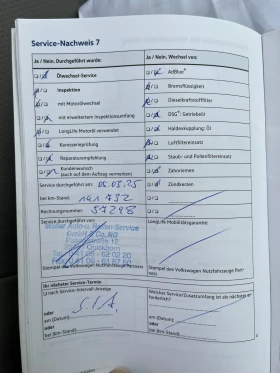 Service-Nachweis 7
Ja / Nein. Durchgeführt wurde:
Ölwechsel-Service
Inspektion
mit Motorölwechsel
mit erweitertem Inspektionsumfang
LongLife Motoröl verwendet
Karosserieprüfung
Reparaturempfehlung
Kundenwunsch
(auch auf dem Auftrag vermerken)
Service durchgeführt am: 05.03.25
bei km-Stand: 191 732
Rechnungsnummer: 57298
Service durchgeführt von:
Müller Auto-u. Roller-Service
GmbH & Co.KG
Stempel des Volkswagen Nutzfahrzeuge Partners
Ja / Nein. Wechsel von:
AdBlue®
Bremsflüssigkeit
Dieselkraftstofffilter
DSG®: Getriebeöl
Haldexkupplung: Öl
Luftfiltereinsatz
Staub- und Pollenfiltereinsatz
Zahnriemen
Zündkerzen
LongLife Mobilitätsgarantie:
Stempel des Volkswagen Nutzfahrzeuge Partners
Ihr nächster Service-Termin:
nach Service-Intervall-Anzeige
oder
am (Datum):
oder
bei (km-Stand):
S.I.A.
Welcher Service/Zusatzumfang ist als nächstes erforderlich?
am (Datum):
oder
bei (km-Stand):